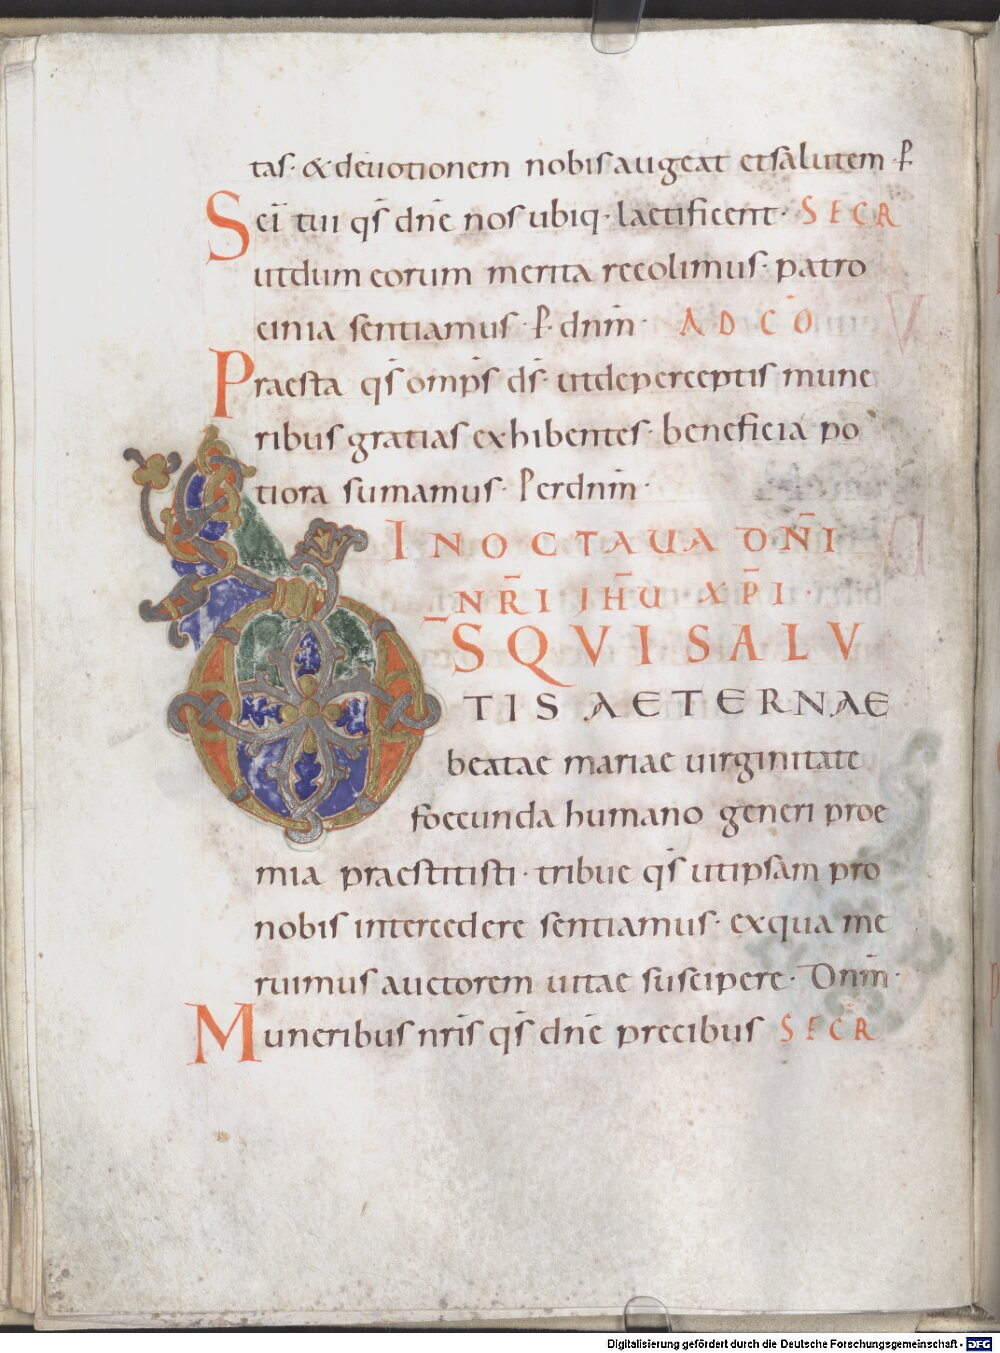 tas· & deuotionem nobis augeat et salutem · P̄
Sc̄i tui qs̄ dn̄e nos ubiq· laetificent· SECR
ut dum eorum merita recolimus· patro
cinia sentiamus · P̄ dnm̄· AD CŌ
Praesta qs̄ omp̄s ds̄· ut de perceptis mune
ribus gratias exhibentes· beneficia po
tiora sumamus· Per dnm̄·
IN OCTAUA DN̄I
NR̄I IHŪ XP̄I ·
D̄S QVI SALV
TIS AETERNAE
beatae mariae uirginitate
foecunda humano generi proe
mia praestitisti· tribue qs̄ ut ipsam pro
nobis intercedere sentiamus· ex qua me
ruimus auctorem uitae suscipere· Dnm̄·
Muneribus nr̄is qs̄ dn̄e precibus SECR
Digitalisierung gefördert durch die Deutsche Forschungsgemeinschaft - DFG